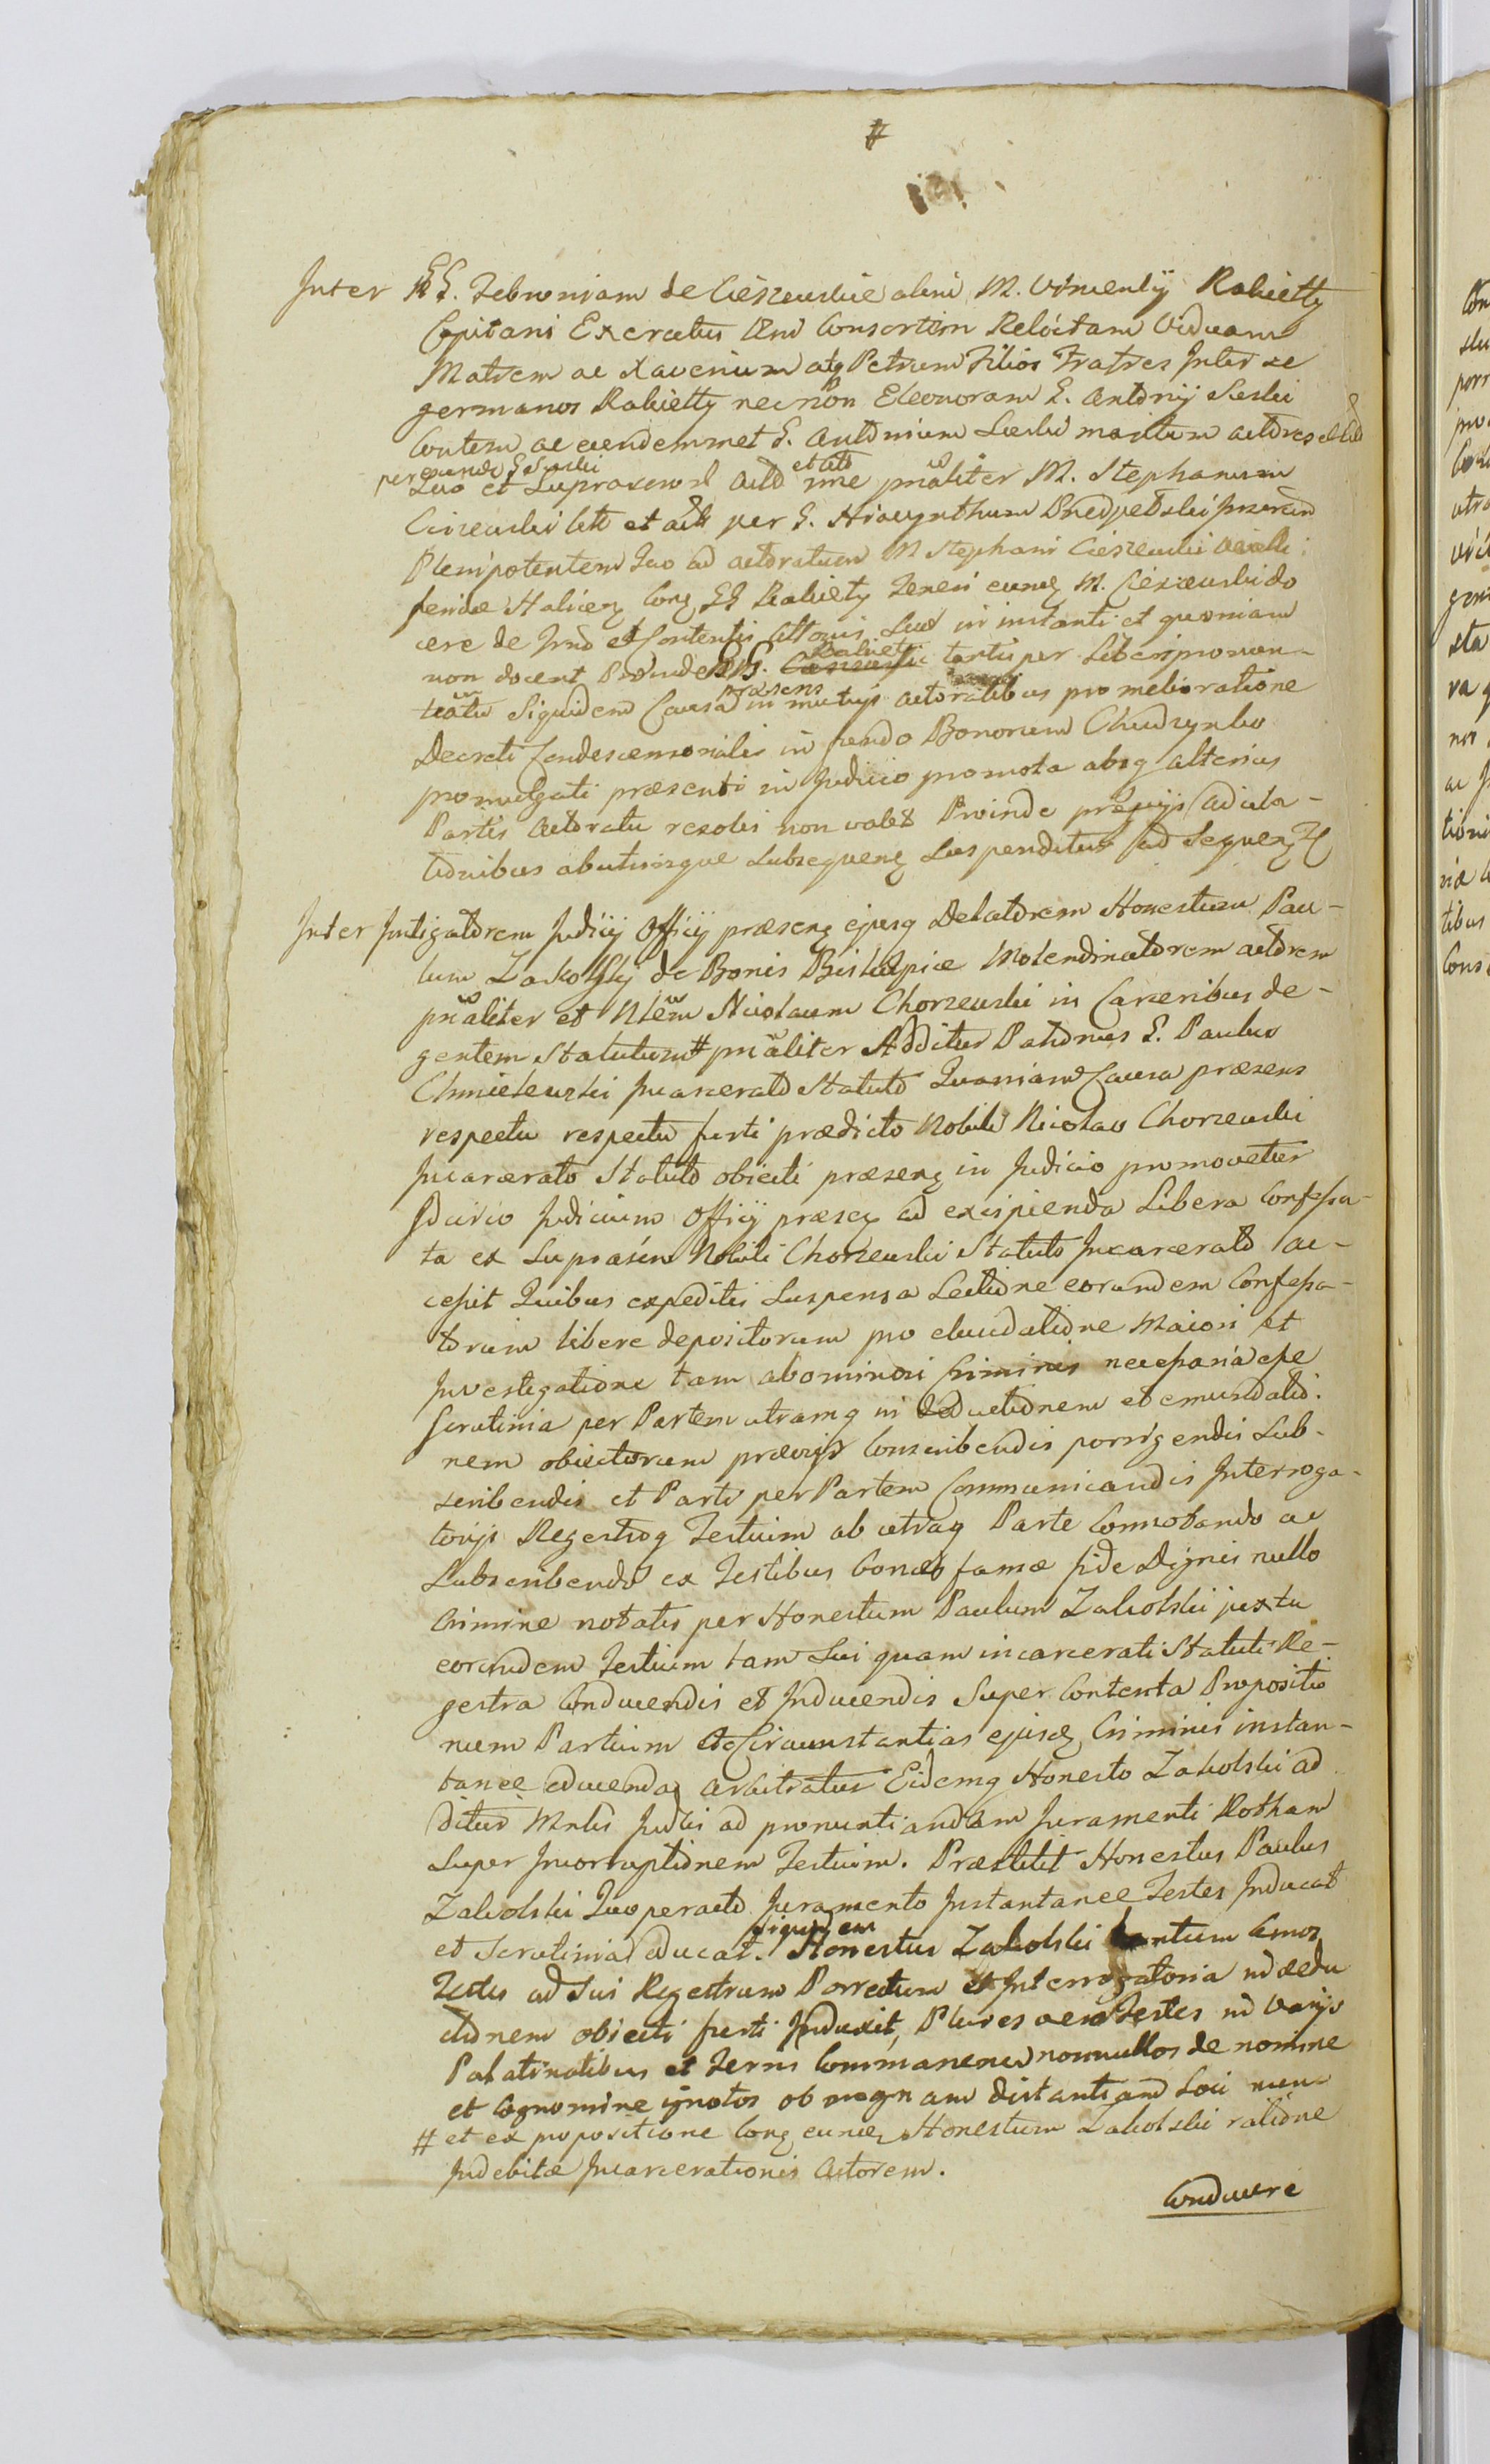 #
Inter GG. Febroniam de Cieszewskie olim M. Vincentij Rakietty
Capitani Exercitus Consortem Relictam Viduam
Matrem ac Xaverium atq Petrum Filios Fratres Inter se
germanos Rakietty necnon Eleonoram G. Antonij Suski
Contem ac eundemmet G. Antonium Suski maritum actores
per eundem G Suski
Suo et Supraxen Acto et cito me pnaliter M. Stephanum
Cieszewski citt et actt per G. Hiacynthum
Plenipotentem Quo ad actoratum M Stephani Cieszewski vexilli
feridæ Halicen Conq GG Rakiety Teneri eunq M. Cieszewski do
cere de Jmo et Contentis Cittonis Suo in instanti et quoniam
non docent Proinde GG. Rakiet tertii per Liberi pronun-
tiatu Siquidem Causa præsens in mutuis actoratibus pro melioratione
Decreti Condescensorialis in fundo Bonorum Chudzynko
promulgati præsenti in Judicio promota absq alterius
Partis Actoratu resolvi non valet Proinde prævijs Adcita-
tionibus abutrinque Subsequenq Suspenditur ad Sequenq
Inter Instigatorem Judicij Officij præsenq ejusq Delatorem Honestum Pau-
lum Zakolski de Bonis Biskupice Molendinatorem actorem
pnaliter et Nlem Nicolaum Chorzewski in Carceribus de-
gentem Statutum # pnaliter Additur Patronus G. Paulus
Chmielewski Incarcerato Statuto Quoniam Causa præsens
respectu respectu furti prædicto Nobili Nicolao Chorzewski
Incarcerato Statuto obiecti præsenq in Judicio promovetur
Idcirco Judicium Officij præsenq ad excipienda Libera Confessa-
ta ex Suprascn Nobili Chorzewski Statuto Incarcerato ac-
cessit Quibus expeditis Suspensa Lectione eorundem Confessa-
torum libere depositorum pro elucidatione Maiori et
Investigatione tam abominosi Criminis necessaria esse
Scrutinia per Partem utramq in deductionem et emundatio-
nem obiectorum prævijs Conscribendis porrigendis Sub-
scribendis et Parti per Partem Communicandis Interroga-
torijs Regestroq Testium ab utraq Parte Connotando ac
Subscribendo ex Testibus bonæ famæ fide Dignis nullo
Crimine notatis per Honestum Paulum Zakolski juxta
eorundem Testium tam Sui quam incarcerati Statuti Re-
gestra Conducendis et Inducendis Super Contenta Propositio
num Partium et Circumstantias ejusq Criminis instan-
tanee educenda arbitratur Eidemq Honesto Zakolski ad
ditur Mnlis Judii ad pronuntiandam Juramenti Rotham
Super Incorruptionem Testium. Præstitit Honestus Paulus
Zakolski Quo peracto Juramento Instantanee Testes Inducat
et Scrutinia educat. Siquidem Honestus Zakolski tantum
Testes ad Sui Regestrum Porrectum et Interrogatoria in dedu
ctionem obiecti furti Induxit, Plures vero Testes in varijs
Palatinatibus et Terris Commanen nonnullos de nomine
et Cognomine ignotos ob magnam distantiam Loci nunc
# et ex propositione Conq eunq Honestum Zakolski ratione
Indebitæ Incarcerationis Actorem.
Conducere